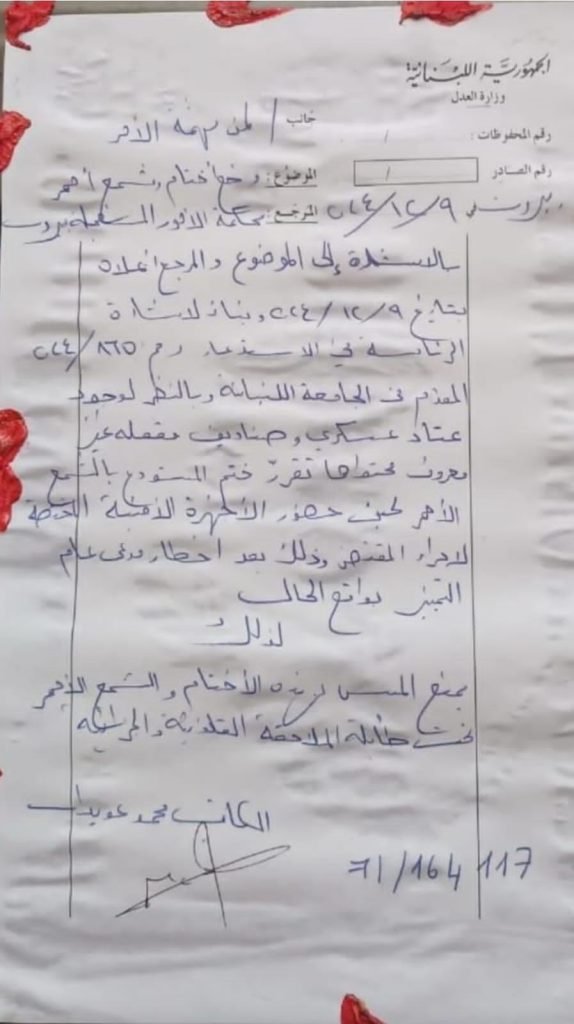 الجمهوريّة اللبنانيّة
وزارة العدل
رقم المحفوظات : /
جانب / لمن يهمه الأمر
رقم الصادر /
الموضوع : وضع أختام وشمع أحمر
بيروت في ٢٠٢٤/١٢/٩
المرجع : محكمة الأمور المستعجلة بيروت
بالاستناد إلى الموضوع والمرجع أعلاه
بتاريخ ٢٠٢٤/١٢/٩ وبناء لاشارة
الرئاسة في الاستدعاء رقم ٢٠٢٤/٨٦٥
المقدم من الجامعة اللبنانية وبالنظر لوجود
عتاد عسكري وصناديق مقفلة غير
معروف محتواها تقرر ختم المستودع بالشمع
الأحمر لحين حضور الأجهزة الأمنية المختصة
لاجراء المقتضى وذلك بعد اخطار مدعي عام
التمييز بواقع الحال
لذلك
يمنع المس بهذه الأختام والشمع الأحمر
تحت طائلة الملاحقة القانونية والجزائية
الكاتب محمد عويدات
71/164 117